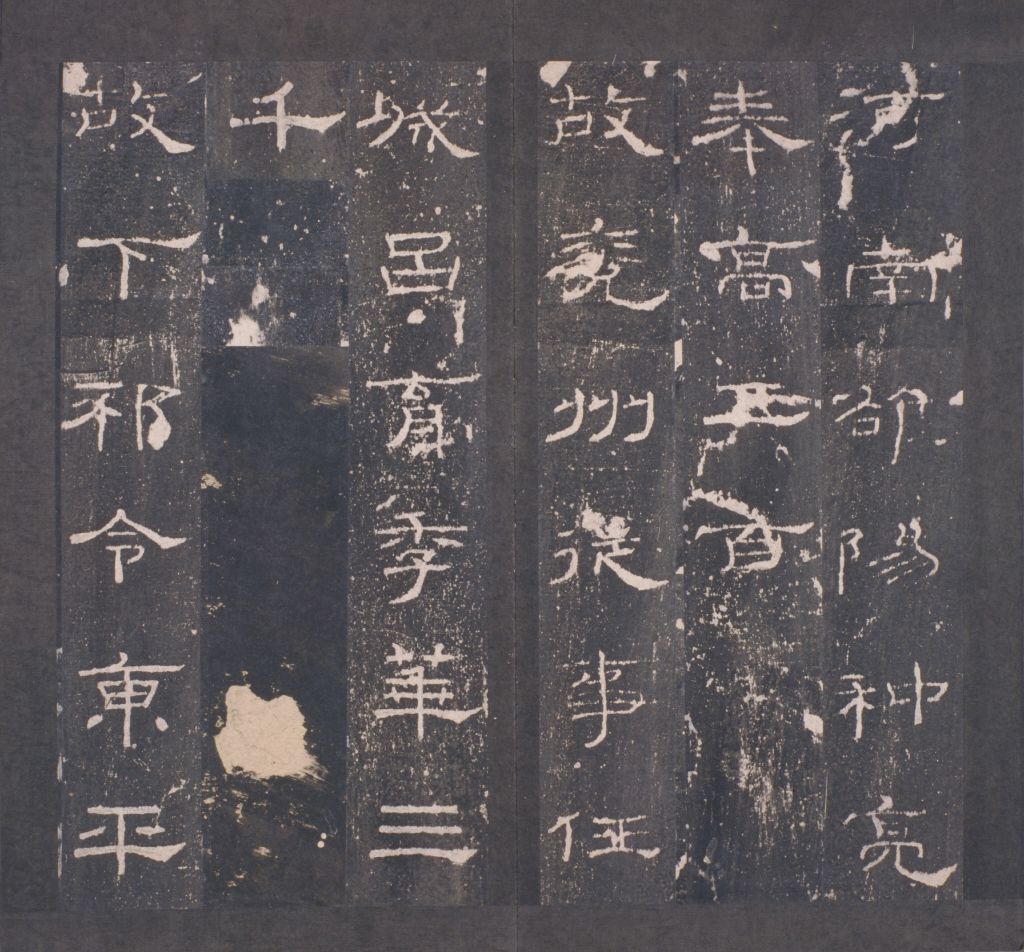 河南陽种亮
奉高五百
故兗州從事任
城呂育季華三
千
故下邳令東平